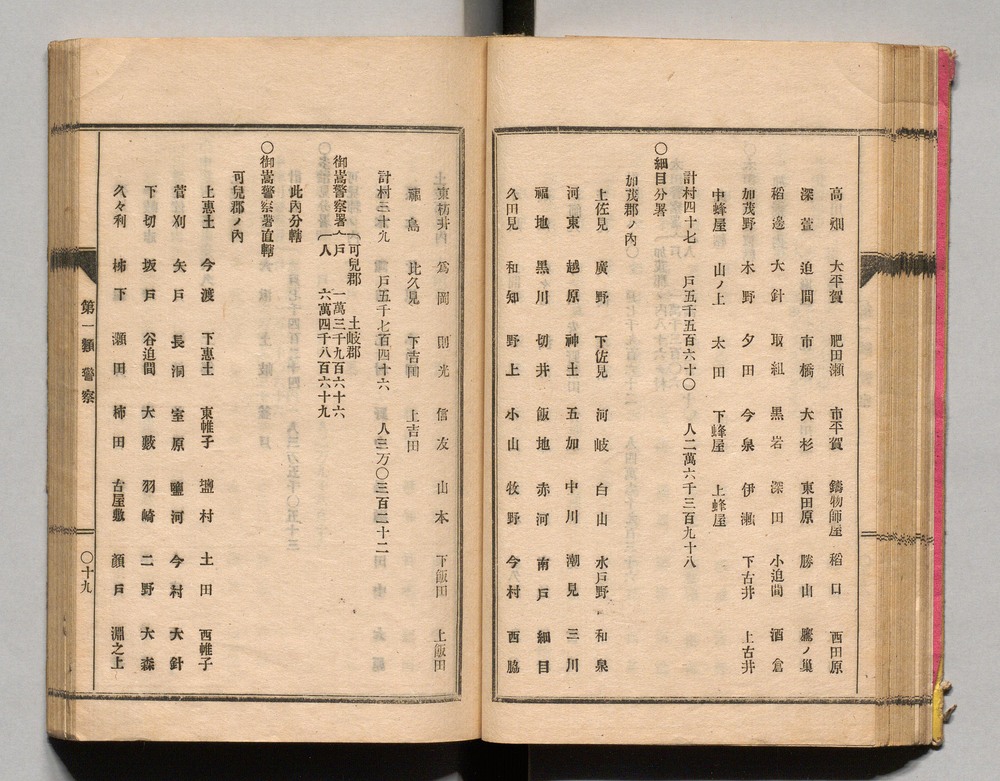 高畑 大平賀 肥田瀬 市平賀 鑄物師屋 稻口 西田原
深萱 迫間 市橋 大杉 東田原 勝山 鷹ノ巢
稻邊 大針 取組 黑岩 深田 小迫間 酒倉
加茂野 木野 夕田 今泉 伊瀬 下古井 上古井
中蜂屋 山ノ上 太田 下蜂屋 上蜂屋
計村四十七 戸五千五百六十〇 人二萬六千三百九十八
〇細目分署
加茂郡ノ內〇
上佐見 廣野 下佐見 河岐 白山 水戸野 和泉
河東 越原 神土 五加 中川 潮見 三川
福地 黑川 切井 飯地 赤河 南戸 細目
久田見 和知 野上 小山 牧野 今村 西脇
東栃井 爲岡 則光 信友 山本 下飯田 上飯田
蘿島 比久見 下吉田 上吉田
計村三十九 戸五千七百四十六 人三万〇三百二十二
可兒郡 土岐郡
御嵩警察署 戸 一萬三千九百六十六
人 六萬四千八百六十九
此內分轄
〇御嵩警察署直轄
可兒郡ノ內
上惠土 今渡 下惠土 東帷子 鹽村 土田 西帷子
菅刈 矢戸 長洞 室原 鹽河 今村 大針
下切 坂戸 谷迫間 大藪 羽崎 二野 大森
久々利 柿下 瀬田 柿田 古屋敷 顔戸 淵之上
第一類 警察
〇十九